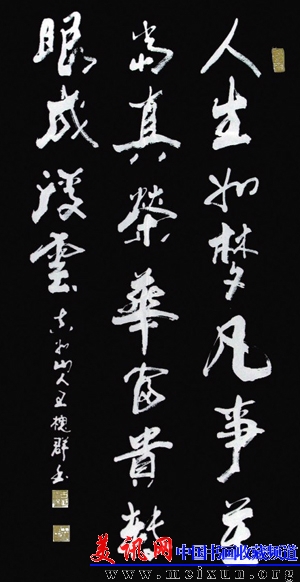 人生如梦凡事莫
当真榮華富貴轉
眼成浮雲
山人王槐群书
美讯网 中国书画收藏频道
www.meixun.org